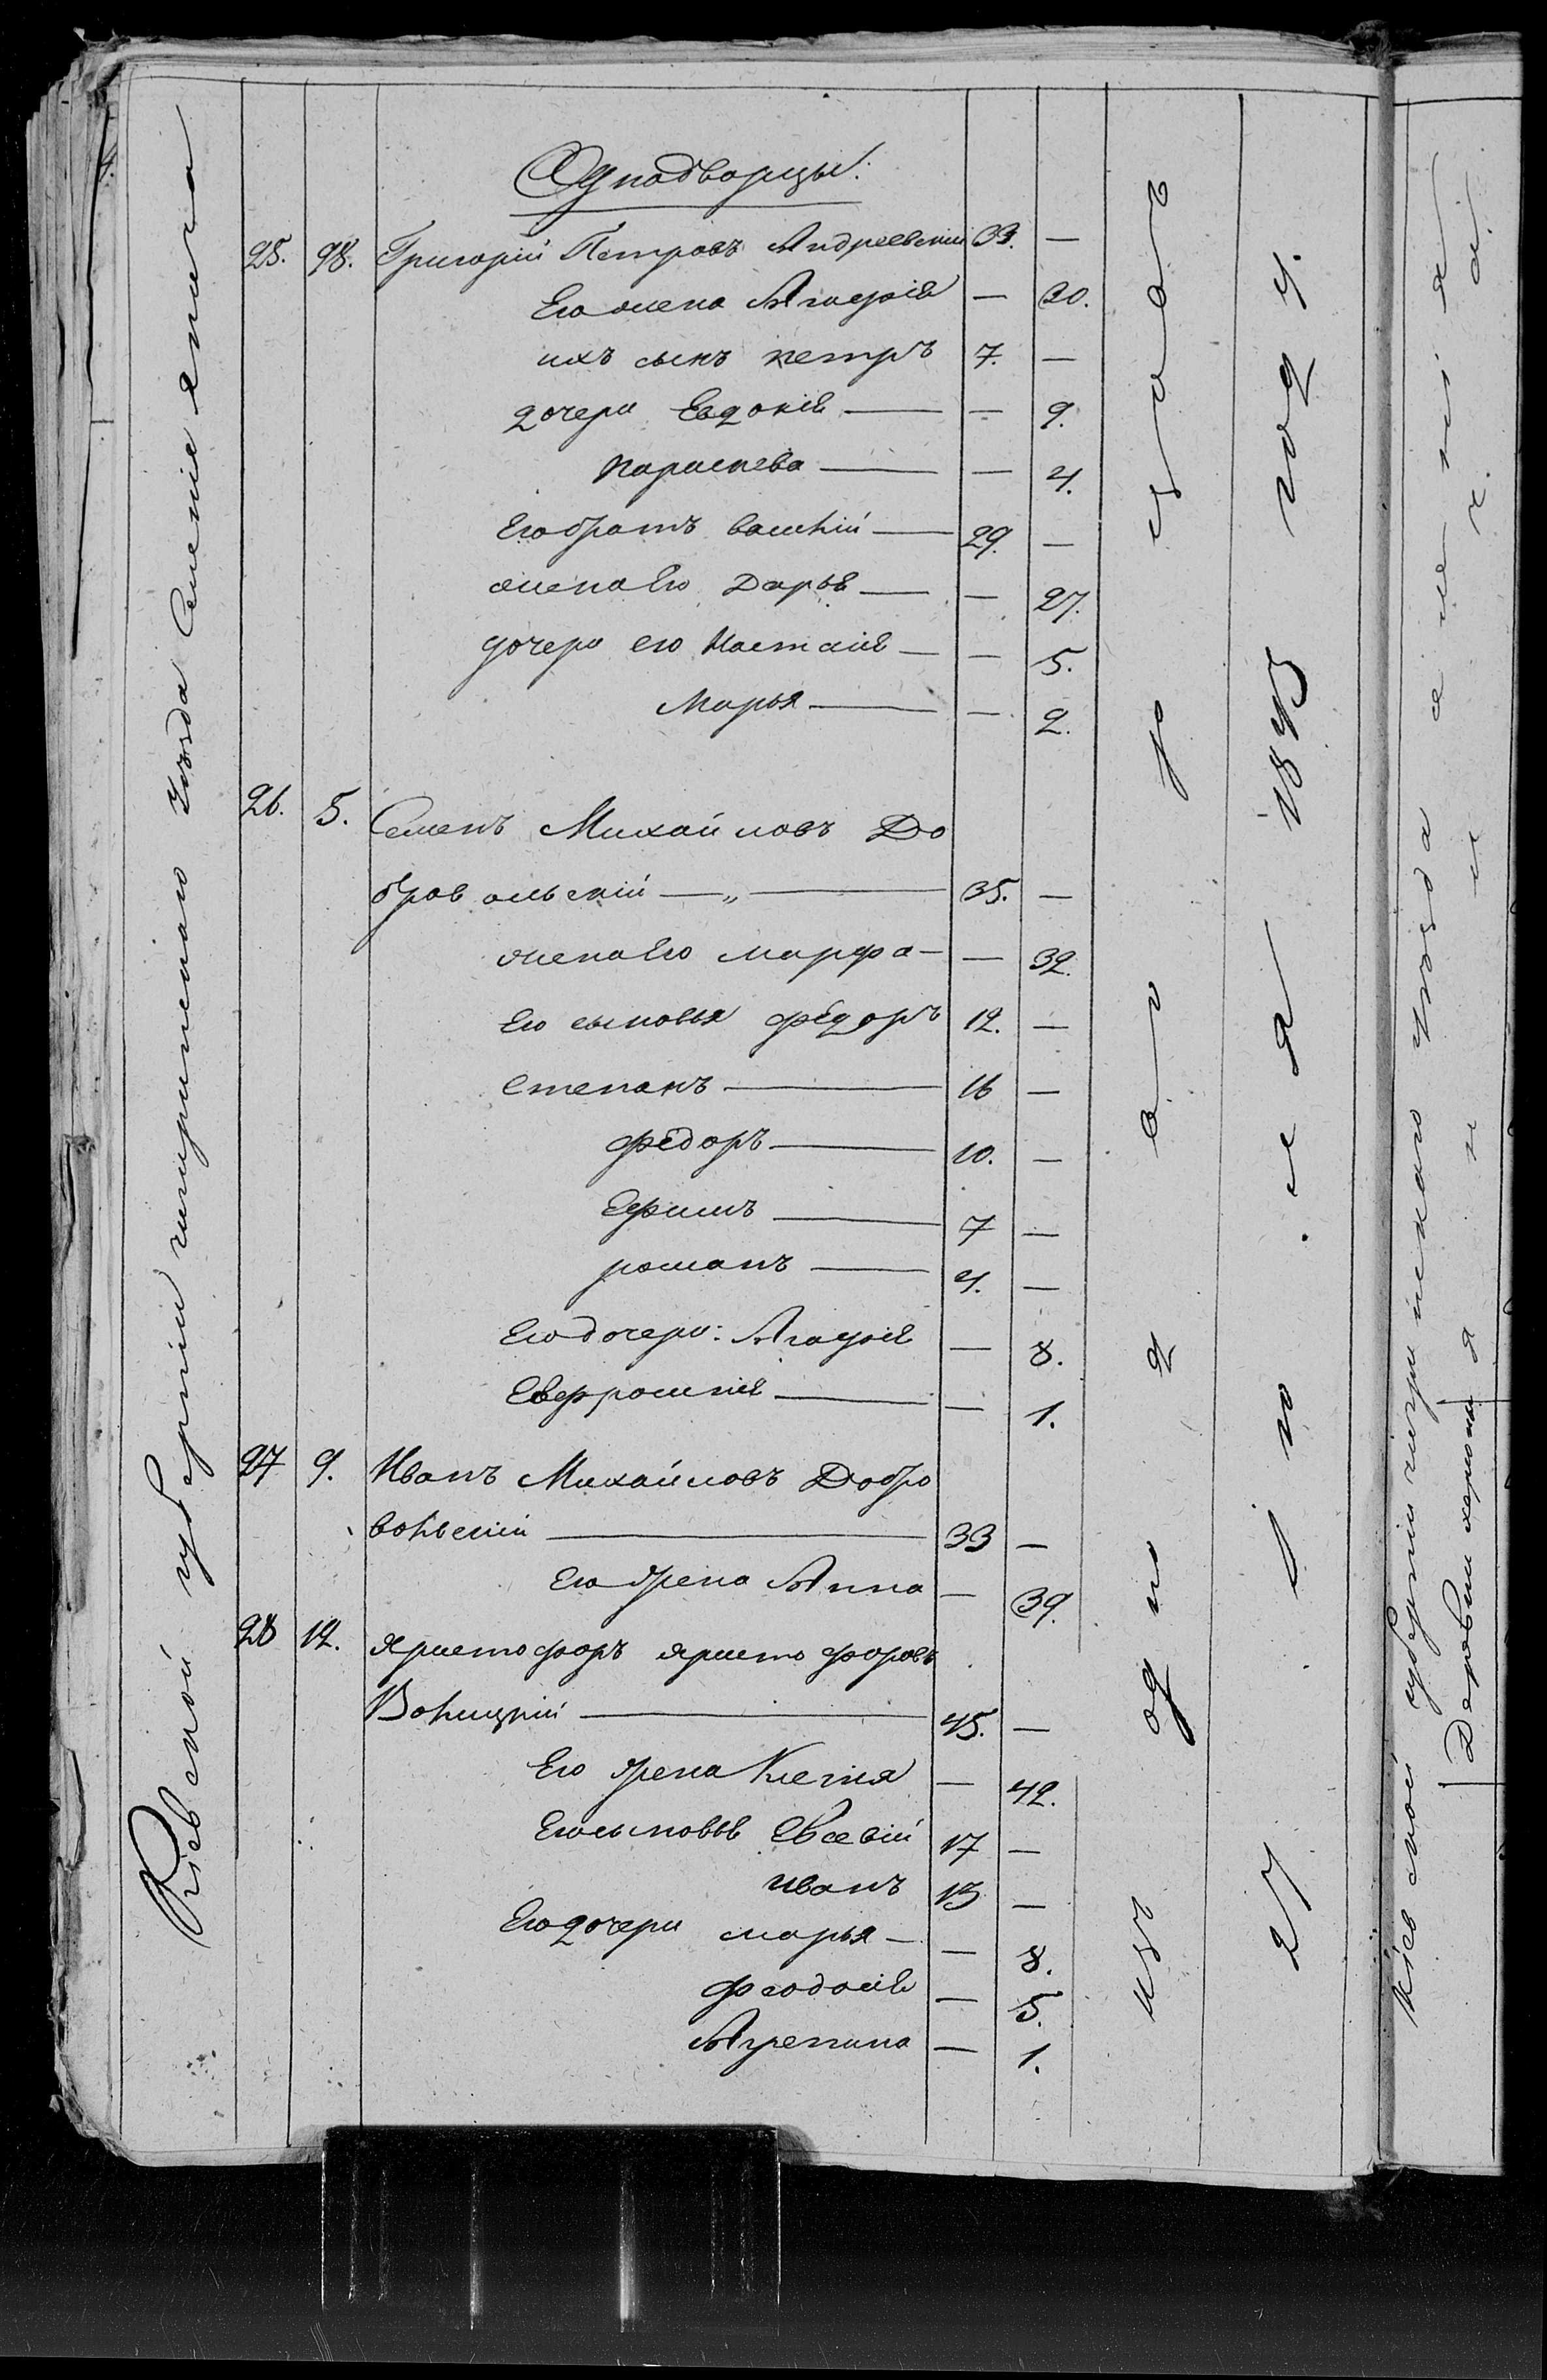 Однодворцы:
25. 98. Григорій Петровъ Андреевскій 33. —
Его жена Агафія — 30.
ихъ сынъ петръ 7. —
дочери Евдокія — — 9.
параскева — — 4.
Его братъ василій — 29. —
жена Его Дарья — — 27.
дочери его Настасія — — 5.
Марья — — 2.
26. 5. Семенъ Михайловъ До
бровольскій — „ — 35. —
жена Его марфа — — 32.
Его сыновья федоръ 12. —
степанъ — 16 —
федоръ — 10. —
Ефимъ — 7 —
романъ — 4. —
Его дочери: Агафія — 8.
Евфросинія — — 1.
27 9. Иванъ Михайловъ Добро
вольскій — 33 —
Его жена Анна — 39.
28 12. Яристофоръ яристофоровъ
Вольицкій — 45. —
Его жена Ксенія — 42.
Его сыновья Евсевій 17 —
иванъ 13 —
Его дочери марья — — 8.
феодосія — 5.
Агрепина — 1.
Кіевской губерніи чигиринскаго уезда Селеніе
изъ однодворцовъ
1845 год
27
Кіевской губерніи чигиринскаго уезда селенія
Деревни